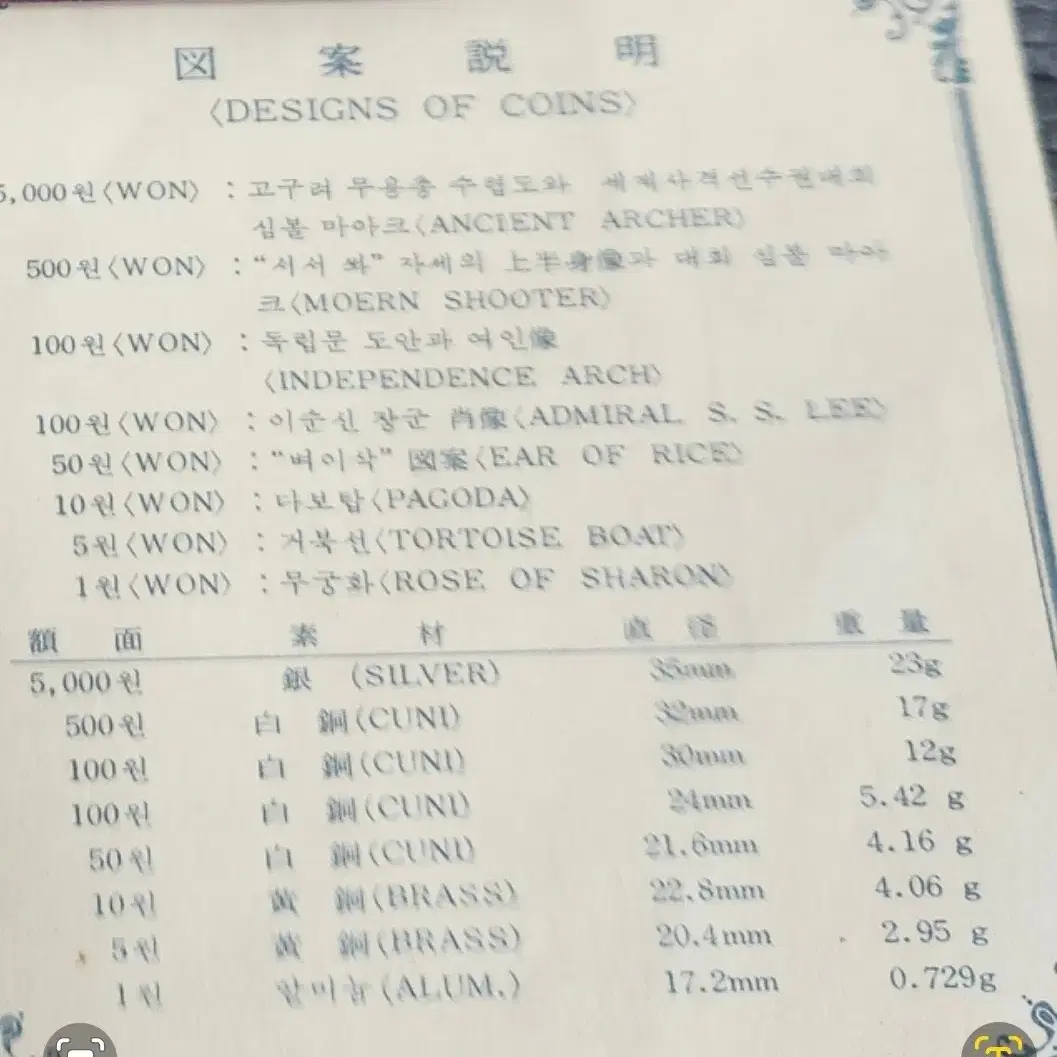 図 案 説 明
〈DESIGNS OF COINS〉
5,000원〈WON〉 : 고구려 무용총 수렵도와 세계사격선수권대회
심볼 마아크〈ANCIENT ARCHER〉
500원〈WON〉 : “서서 쏴” 자세의 上半身像과 대회 심볼 마아
크〈MOERN SHOOTER〉
100원〈WON〉 : 독립문 도안과 여인像
〈INDEPENDENCE ARCH〉
100원〈WON〉 : 이순신 장군 肖像〈ADMIRAL S. S. LEE〉
50원〈WON〉 : “벼이삭” 図案〈EAR OF RICE〉
10원〈WON〉 : 다보탑〈PAGODA〉
5원〈WON〉 : 거북선〈TORTOISE BOAT〉
1원〈WON〉 : 무궁화〈ROSE OF SHARON〉
額 面 素 材 直 径 重 量
5,000원 銀 (SILVER) 35mm 23g
500원 白 銅(CUNI) 32mm 17g
100원 白 銅(CUNI) 30mm 12g
100원 白 銅(CUNI) 24mm 5.42 g
50원 白 銅(CUNI) 21.6mm 4.16 g
10원 黄 銅(BRASS) 22.8mm 4.06 g
5원 黄 銅(BRASS) 20.4mm 2.95 g
1원 알미늄(ALUM.) 17.2mm 0.729g